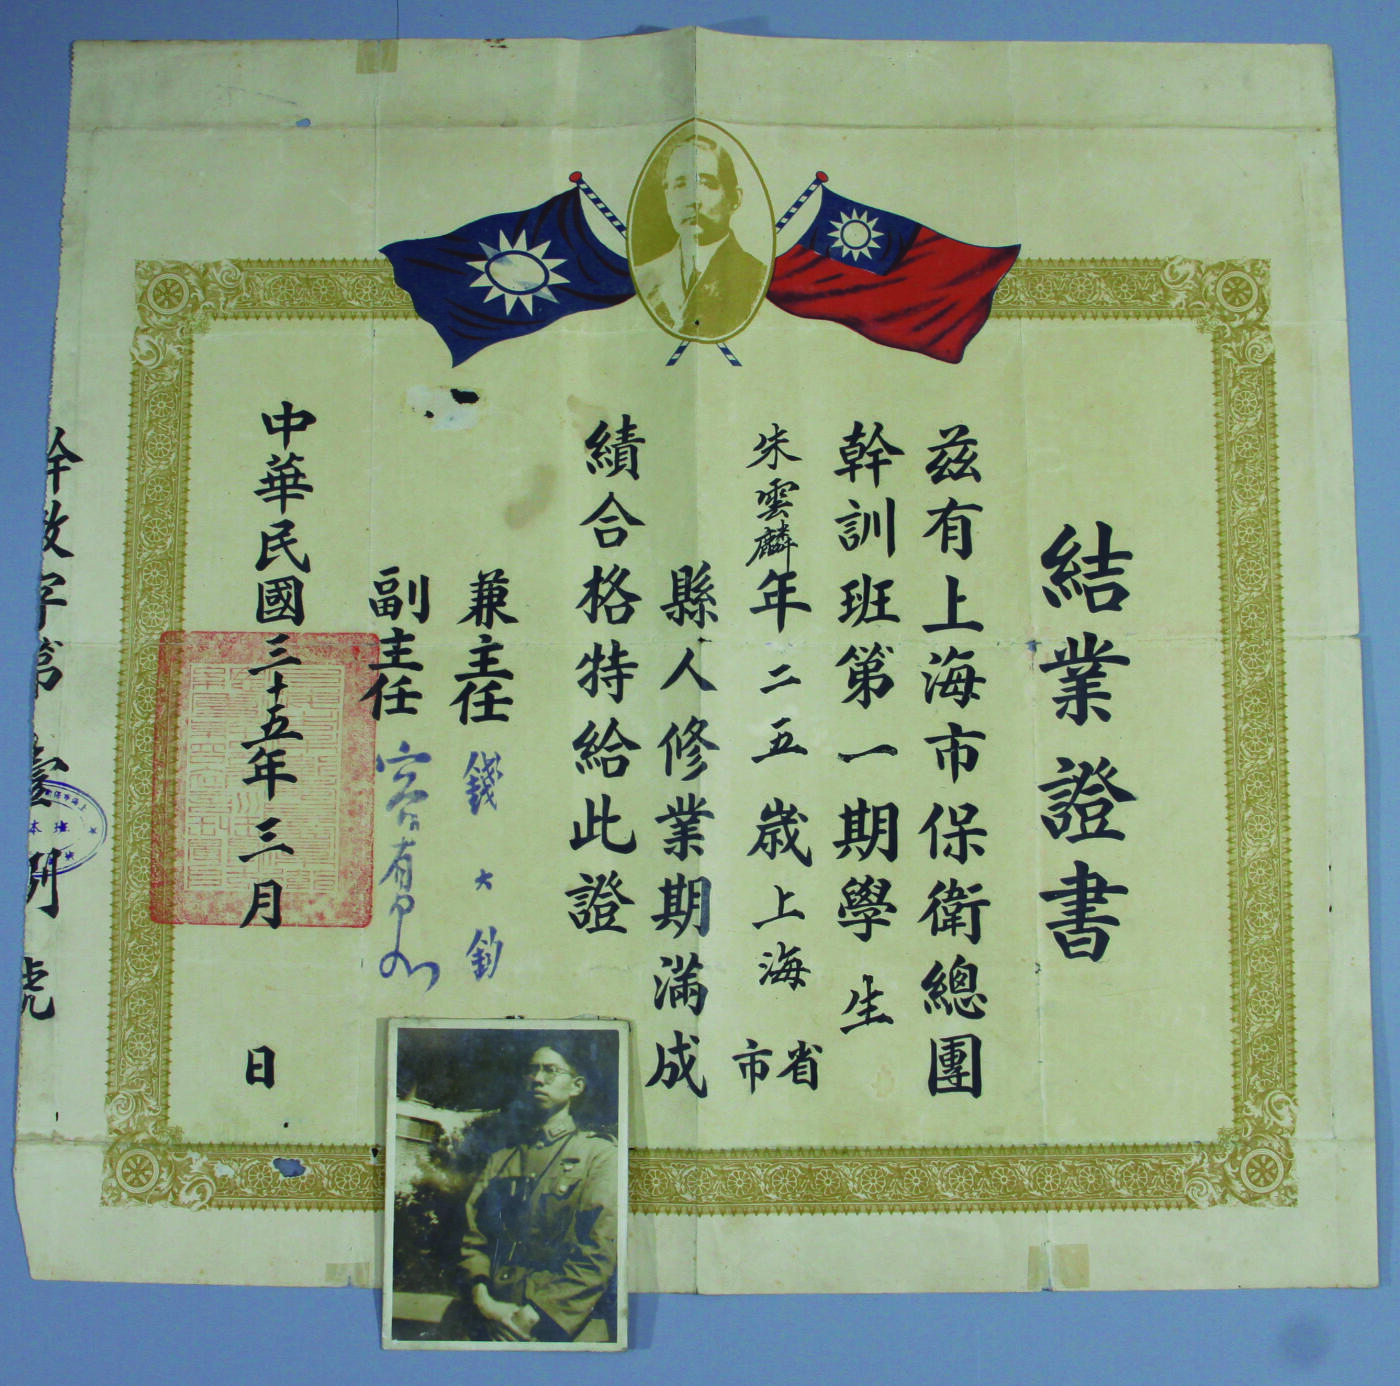 結業證書
茲有上海市保衛總團
幹訓班第一期學生
朱雲麟年二五歲上海省市
縣人修業期滿成
績合格特給此證
兼主任 錢大鈞
副主任
中華民國三十五年三月 日
幹教字第壹捌號